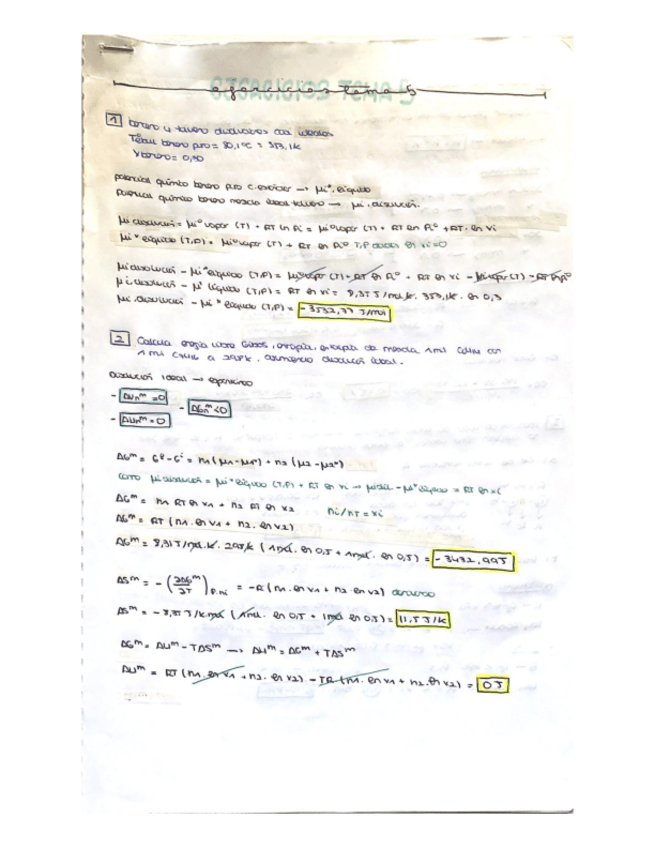 ejercicios tema 5
1 benceno y tolueno disoluciones casi ideales
Tebull benceno puro = 80,1°C = 353,1K
Xbenceno = 0,30
potencial químico benceno puro → μi*. líquido
potencial químico benceno mezcla ideal tolueno → μi. disolución.
μi disolución = μi° vapor (T) + RT ln Pi = μi° vapor (T) + RT ln Pi° + RT. ln xi
μi* líquido (T,P) = μi° vapor (T) + RT ln Pi°
μi disolución - μi* líquido (T,P) = μi° vapor (T) + RT ln Pi° + RT ln xi - μi° vapor (T) - RT ln Pi°
μi disolución - μi* líquido (T,P) = RT ln xi = 8,31 J/mol.K. 353,1K. ln 0,3
μi. disolución - μi* líquido (T,P) = J/mol
2 Calcula energía libre Gibbs, entropía, entalpía de mezcla 1 mol con
1 mol a 298K, asumiendo disolución ideal.
disolución ideal → espontáneo
- ΔHm = 0
- ΔGm < 0
ΔGm = Gf - Gi = n1 (μ1 - μ1°) + n2 (μ2 - μ2°)
como μi disolución = μi* líquido (T,P) + RT ln xi → μi dis - μi* líquido = RT ln xi
ΔGm = n1 RT ln x1 + n2 RT ln x2 ni/nT = xi
ΔGm = RT (n1. ln x1 + n2. ln x2)
ΔGm = 8,31 J/mol.K. 298K (1mol. ln 0,5 + 1mol. ln 0,5) = - 3432,99J
ΔSm = - (∂ΔGm/∂T) P,ni = -R (n1. ln x1 + n2. ln x2)
ΔSm = - 8,31 J/K mol (1mol. ln 0,5 + 1mol ln 0,5) = 11,5 J/K
ΔGm = ΔHm - TΔSm → ΔHm = ΔGm + TΔSm
ΔHm = RT (n1. ln x1 + n2. ln x2) - TR (n1. ln x1 + n2. ln x2) = 0 J